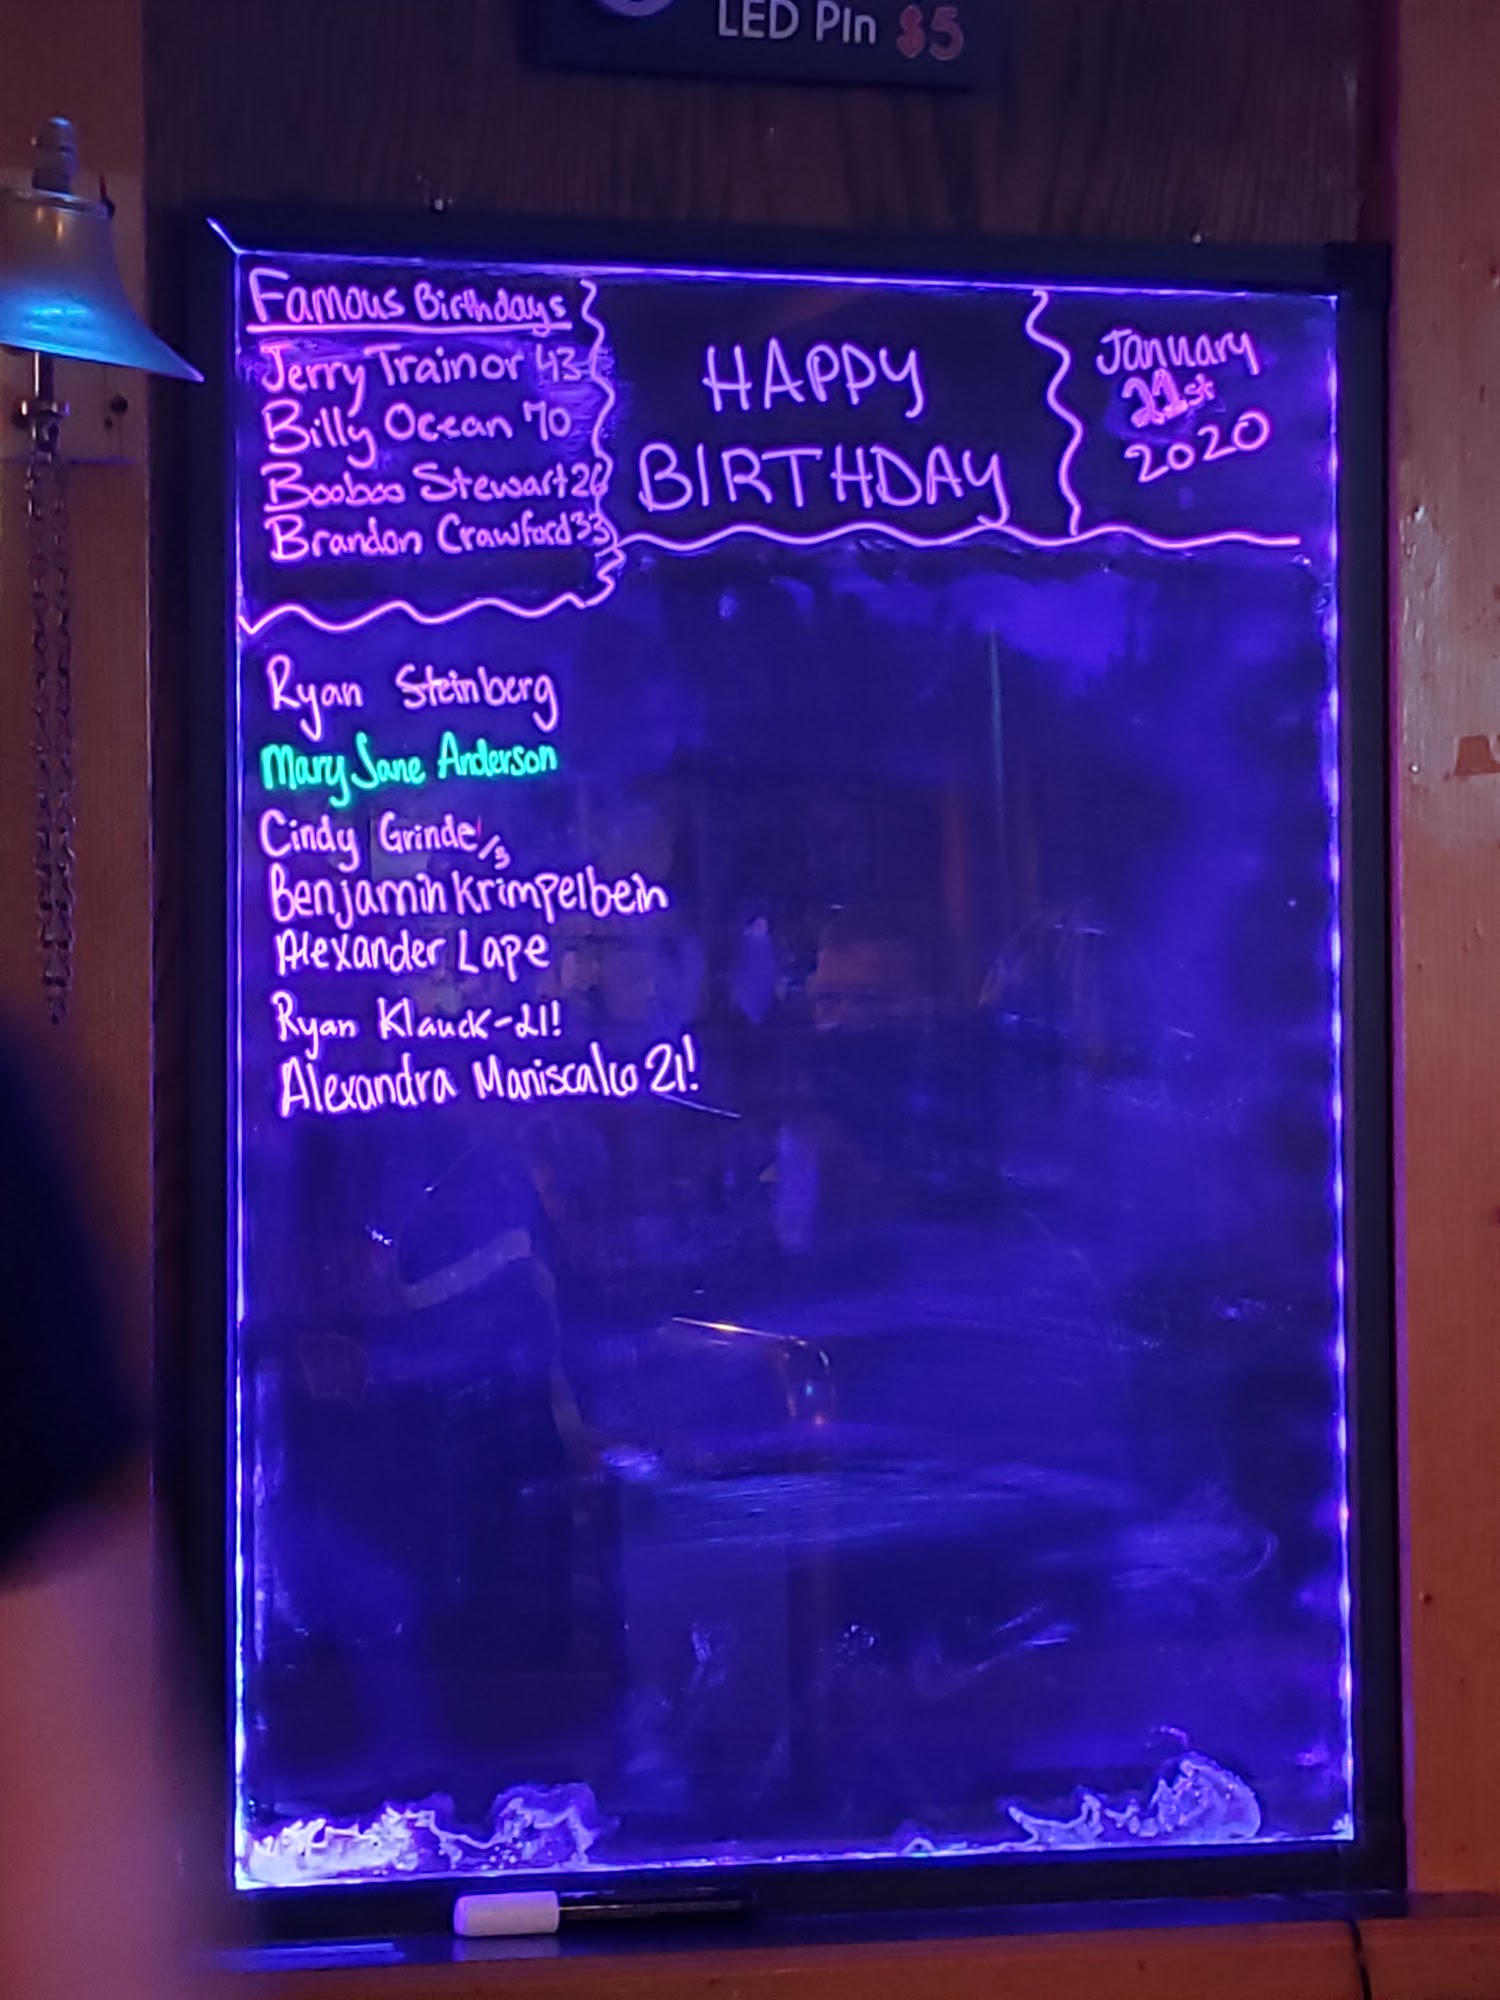 LED Pin $5
Famous Birthdays
Jerry Trainor 43
Billy Ocean 70
Booboo Stewart 26
Brandon Crawford 33
HAPPY
BIRTHDAY
January
21st
2020
Ryan Steinberg
Mary Jane Anderson
Cindy Grinde
Benjamin Krimpelbein
Alexander Lape
Ryan Klauck-21!
Alexandra Maniscalco 21!